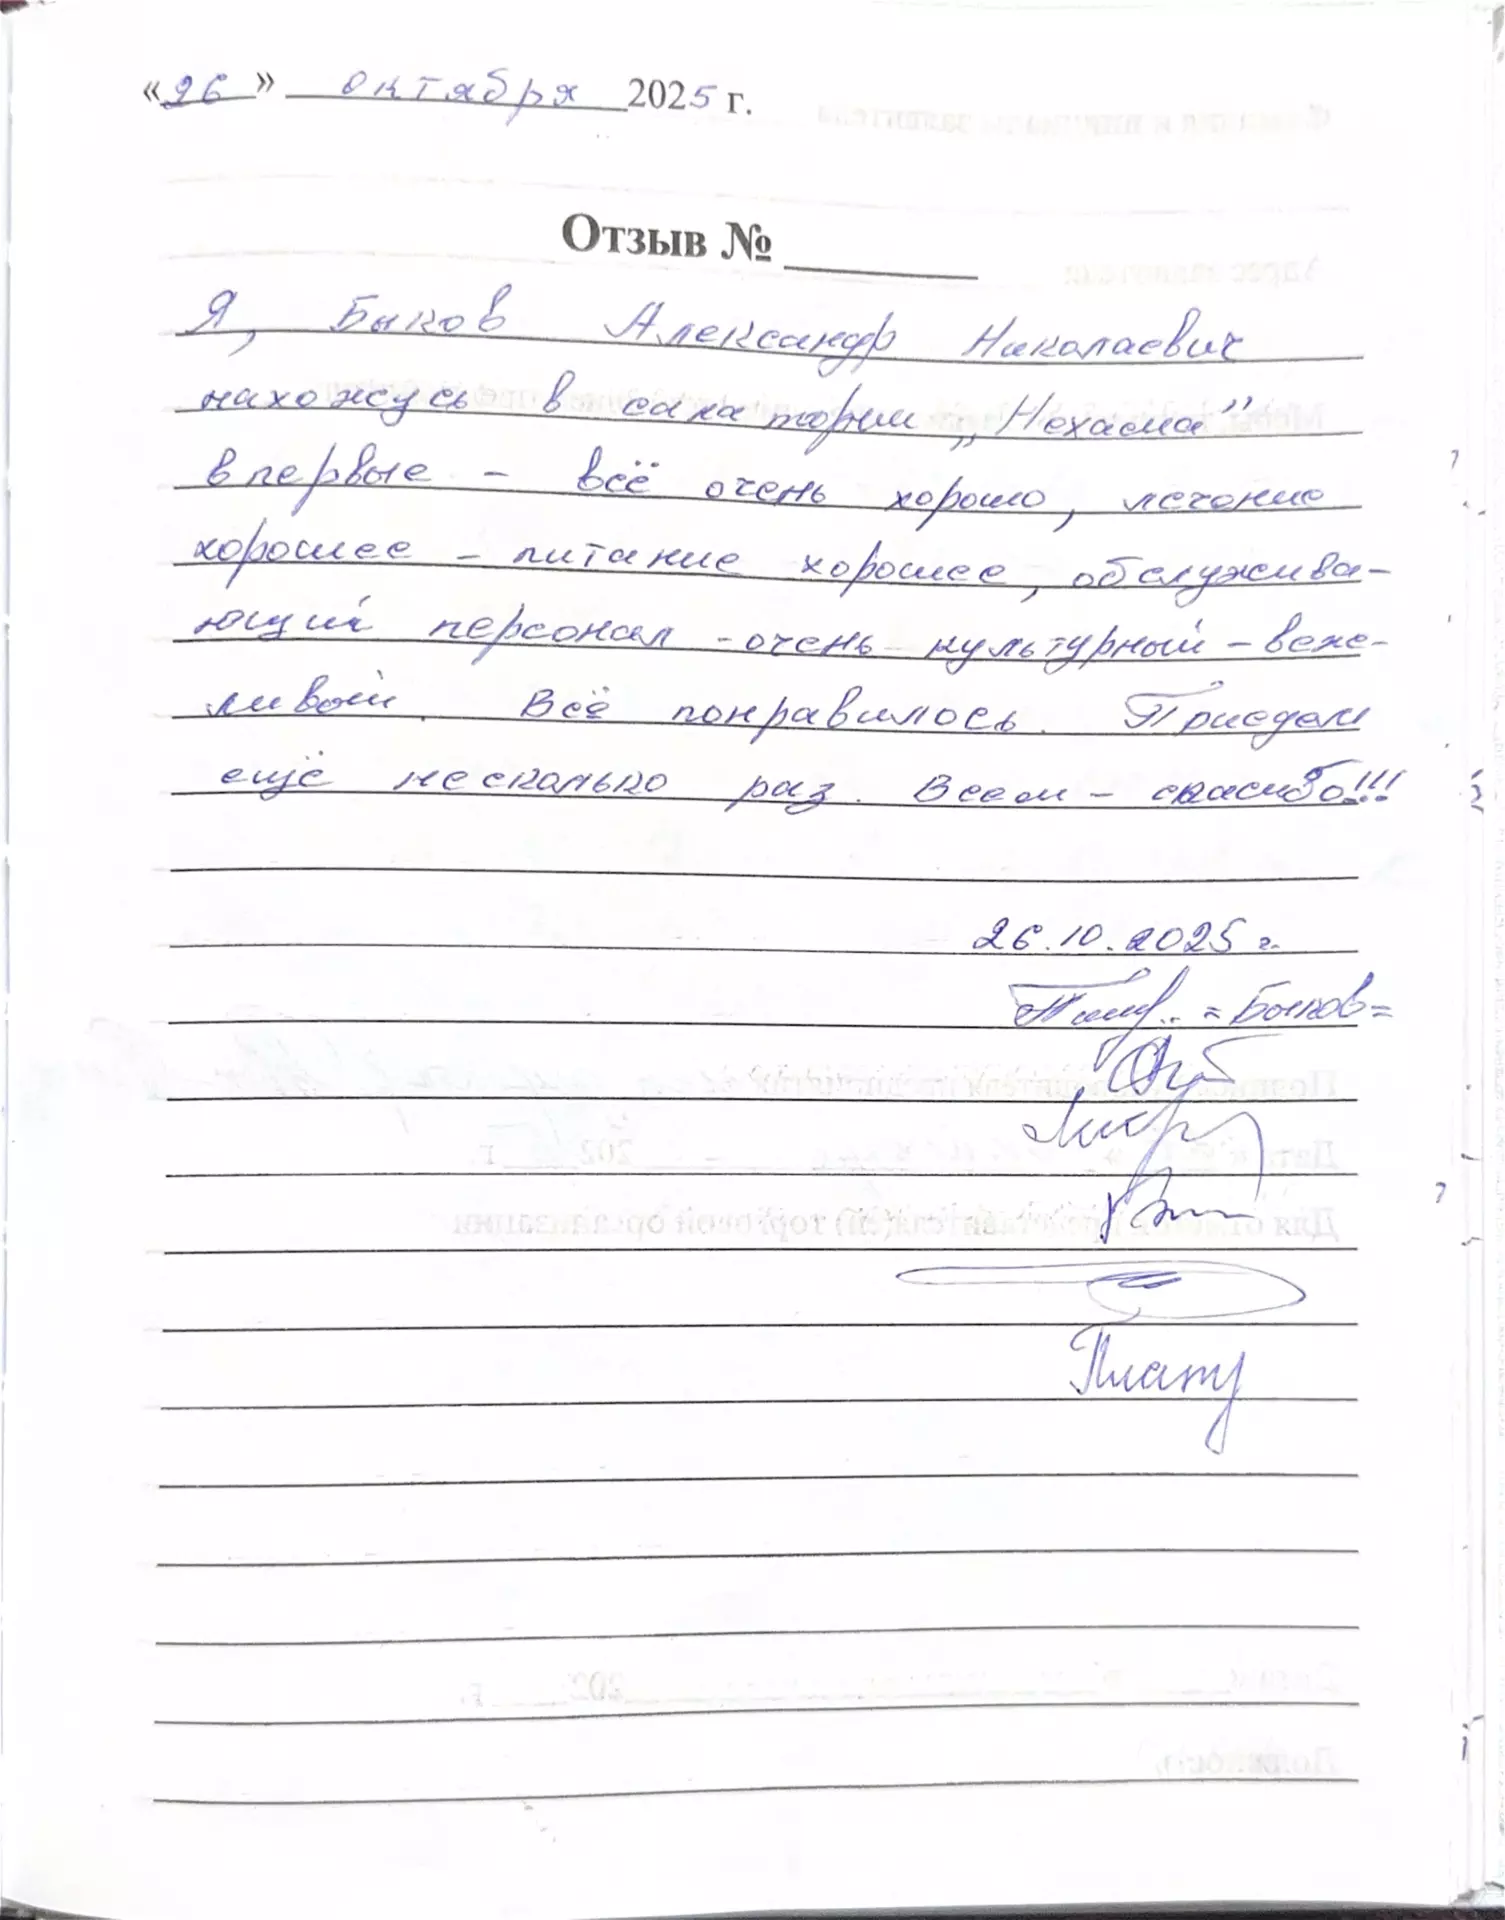 «26» октября 2025 г.
Отзыв №
Я, Быков Александр Николаевич
нахожусь в санатории „Нехама"
впервые – всё очень хорошо, лечение
хорошее – питание хорошее, обслужива-
ющий персонал – очень культурный – веже-
ливый. Всё понравилось. Приедем
ещё несколько раз. Всем – спасибо!!!
26.10.2025 г.
= Быков =